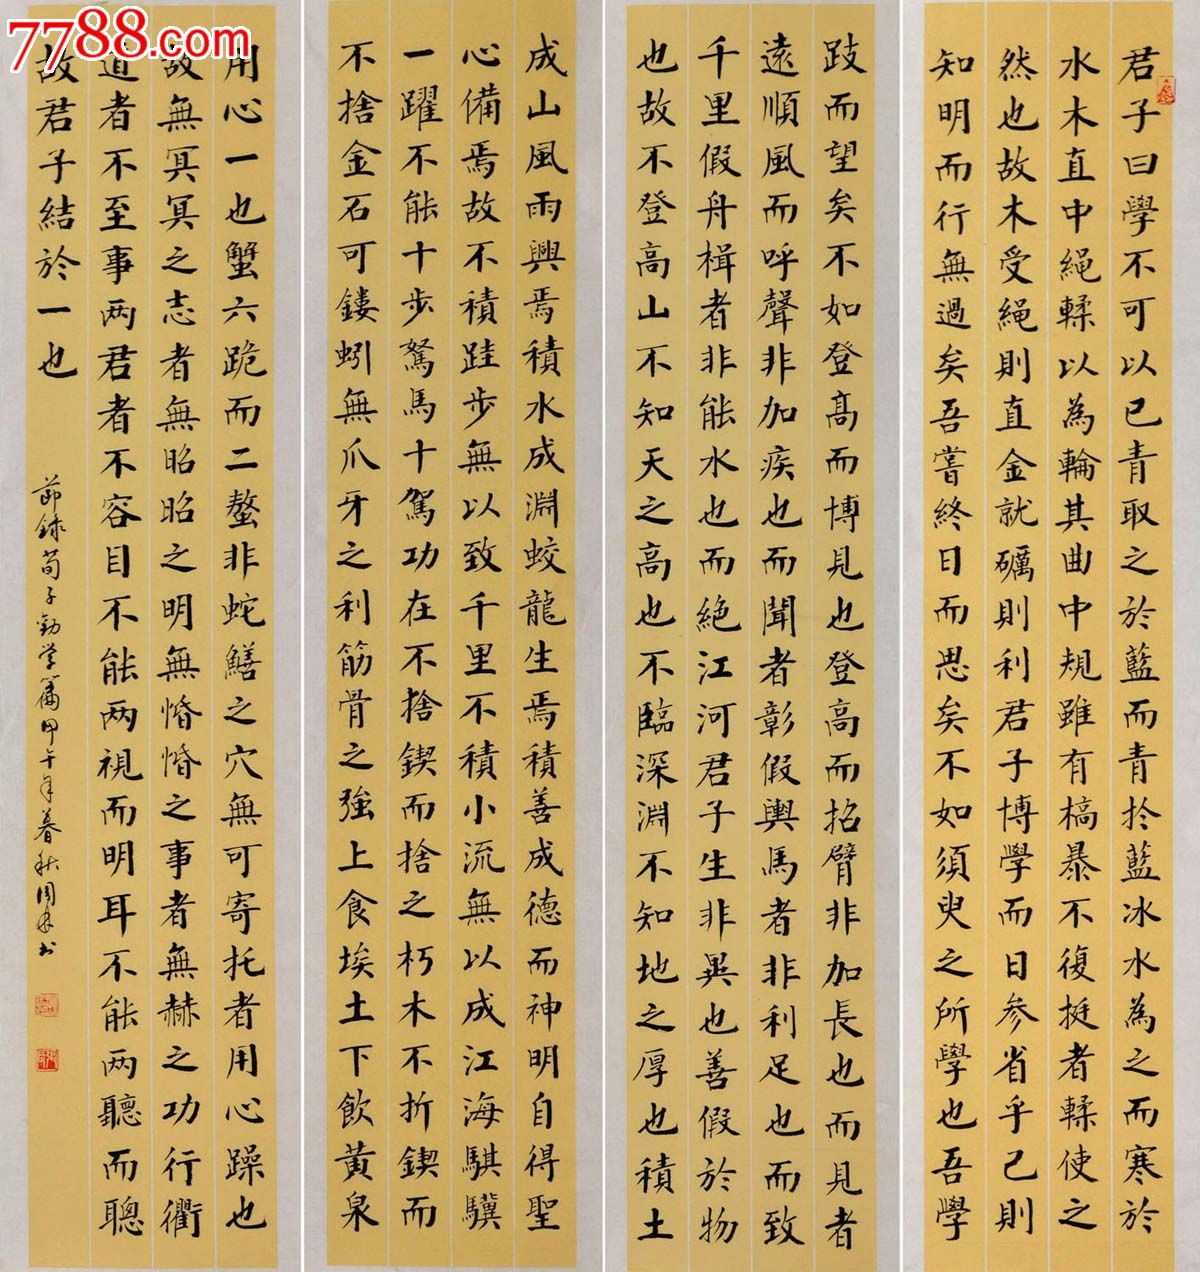 7788.com
君子曰學不可以已青取之於藍而青扵藍冰水為之而寒於
水木直中繩輮以為輪其曲中規雖有槁暴不復挺者輮使之
然也故木受繩則直金就礪則利君子博學而日参省乎己則
知明而行無過矣吾嘗終日而思矣不如須臾之所學也吾學
跂而望矣不如登髙而博見也登高而招臂非加長也而見者
遠順風而呼聲非加疾也而聞者彰假輿馬者非利足也而致
千里假舟楫者非能水也而絕江河君子生非異也善假於物
也故不登高山不知天之高也不臨深淵不知地之厚也積土
成山風雨興焉積水成淵蛟龍生焉積善成德而神明自得聖
心備焉故不積跬步無以致千里不積小流無以成江海騏驥
一躍不能十步駑馬十駕功在不捨鍥而捨之朽木不折鍥而
不捨金石可鏤蚓無爪牙之利筋骨之強上食埃土下飲黃泉
用心一也蟹六跪而二螯非蛇鱔之穴無可寄托者用心躁也
故無冥冥之志者無昭昭之明無惛惛之事者無赫之功行衢
道者不至事两君者不容目不能两視而明耳不能两聽而聰
故君子結於一也
節錄荀子勸学篇甲午年暮秋周书